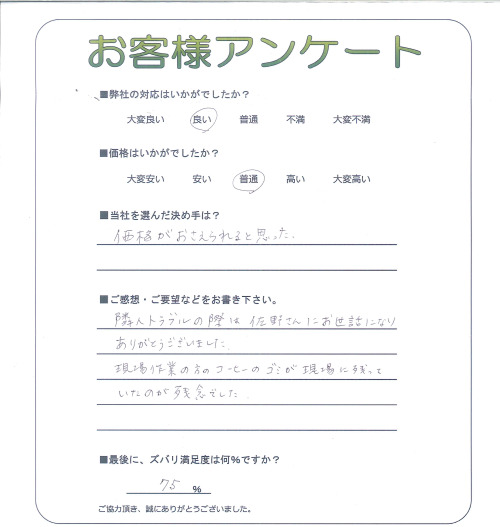 お客様アンケート
■弊社の対応はいかがでしたか？
大変良い 良い 普通 不満 大変不満
■価格はいかがでしたか？
大変安い 安い 普通 高い 大変高い
■当社を選んだ決め手は？
価格がおさえられると思った.
■ご感想・ご要望などをお書き下さい。
隣人トラブルの際は佐野さんにお世話になり
ありがとうございました.
現場作業の方のコーヒーのゴミが現場に残って
いたのが残念でした.
■最後に、ズバリ満足度は何％ですか？
75 %
ご協力頂き、誠にありがとうございました。